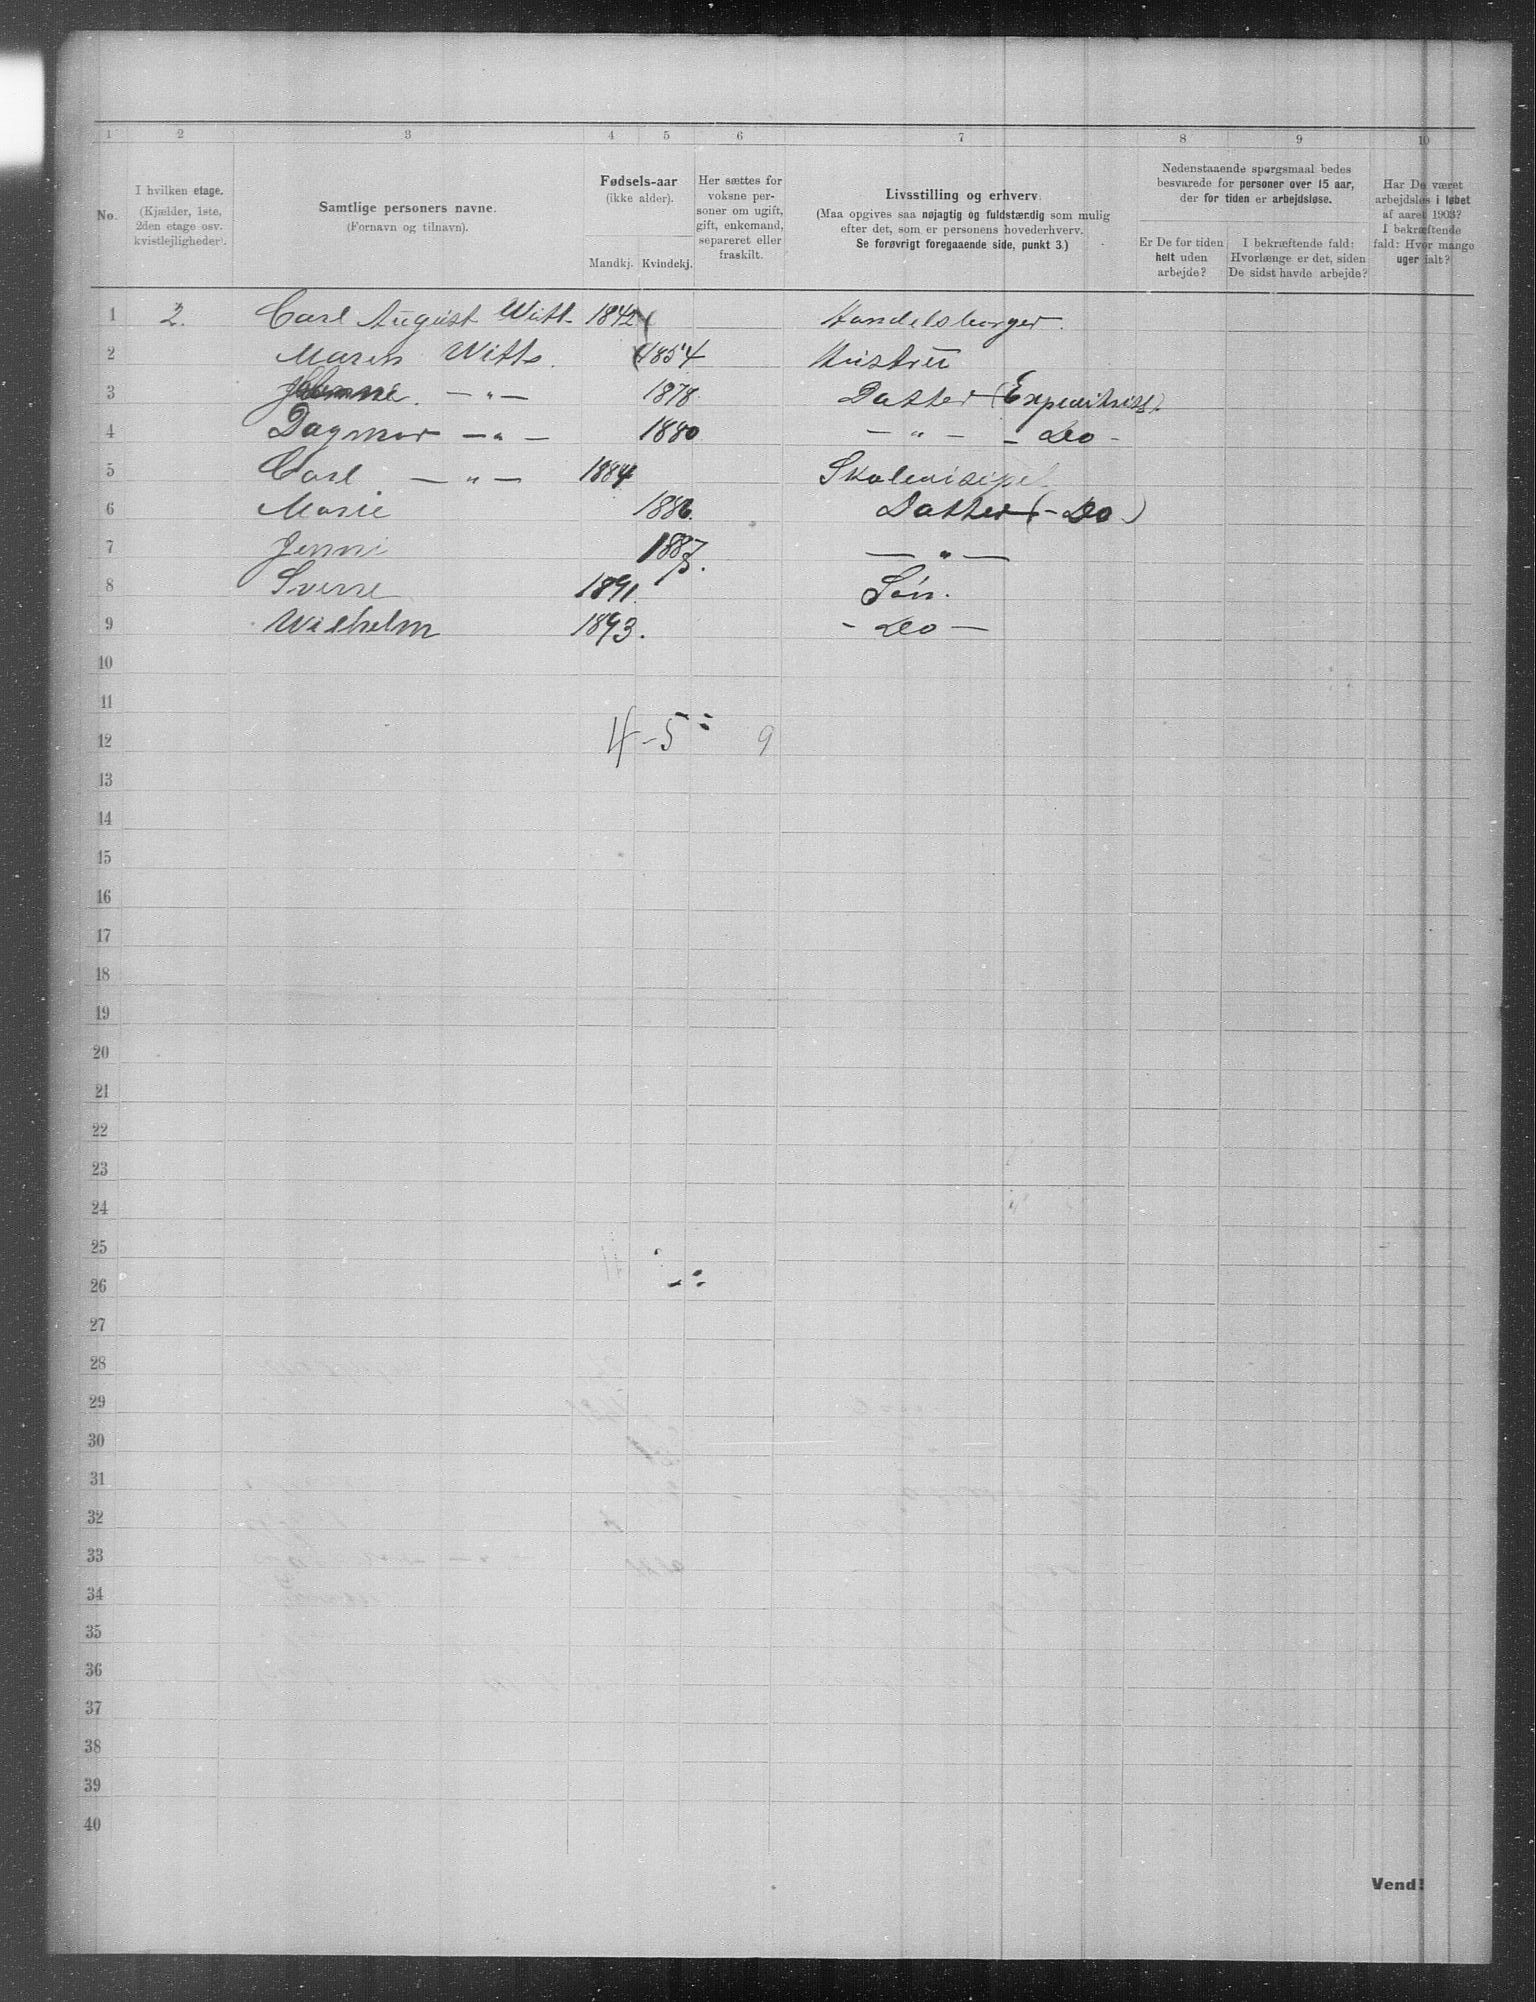 1 2 3 4 5 6 7 8 9 10
No.
I hvilken etage.
(Kjælder, 1ste,
2den etage osv.
kvistlejligheder).
Samtlige personers navne.
(Fornavn og tilnavn).
Fødsels-aar
(ikke alder).
Mandkj. Kvindekj.
Her sættes for
voksne per-
soner om ugift,
gift, enkemand,
separeret eller
fraskilt.
Livsstilling og erhverv.
(Maa opgives saa nøjagtig og fuldstærdig som mulig
efter det, som er personens hovederhverv.
Se forøvrigt foregaaende side, punkt 3.)
Nedenstaaende spørgsmaal bedes
besvarede for personer over 15 aar,
der for tiden er arbejdsløse.
Er De for tiden
helt uden
arbejde?
I bekræftende fald:
Hvorlænge er det, siden
De sidst havde arbejde?
Har De været
arbejdsløs i løbet
af aaret 1903?
I bekræftende
fald: Hvor mange
uger ialt?
1 2. Carl August Witt 1842 Handelsborger.
2 Maren Witt. 1854 Hustru
3 — „ — 1878 Datter (Expeditrise).
4 Dagmar — „ — 1880 — „ — – Do –
5 Carl — „ — 1884 Skoledisipel
6 Marie 1886. Datter (– Do)
7 Jenni 1887. — „ —
8 Sverre 1891. Søn.
9 Wilhelm 1893. – Do —
10
11
12 4 – 5 9
13
14
15
16
17
18
19
20
21
22
23
24
25
26
27
28
29
30
31
32
33
34
35
36
37
38
39
40
Vend!